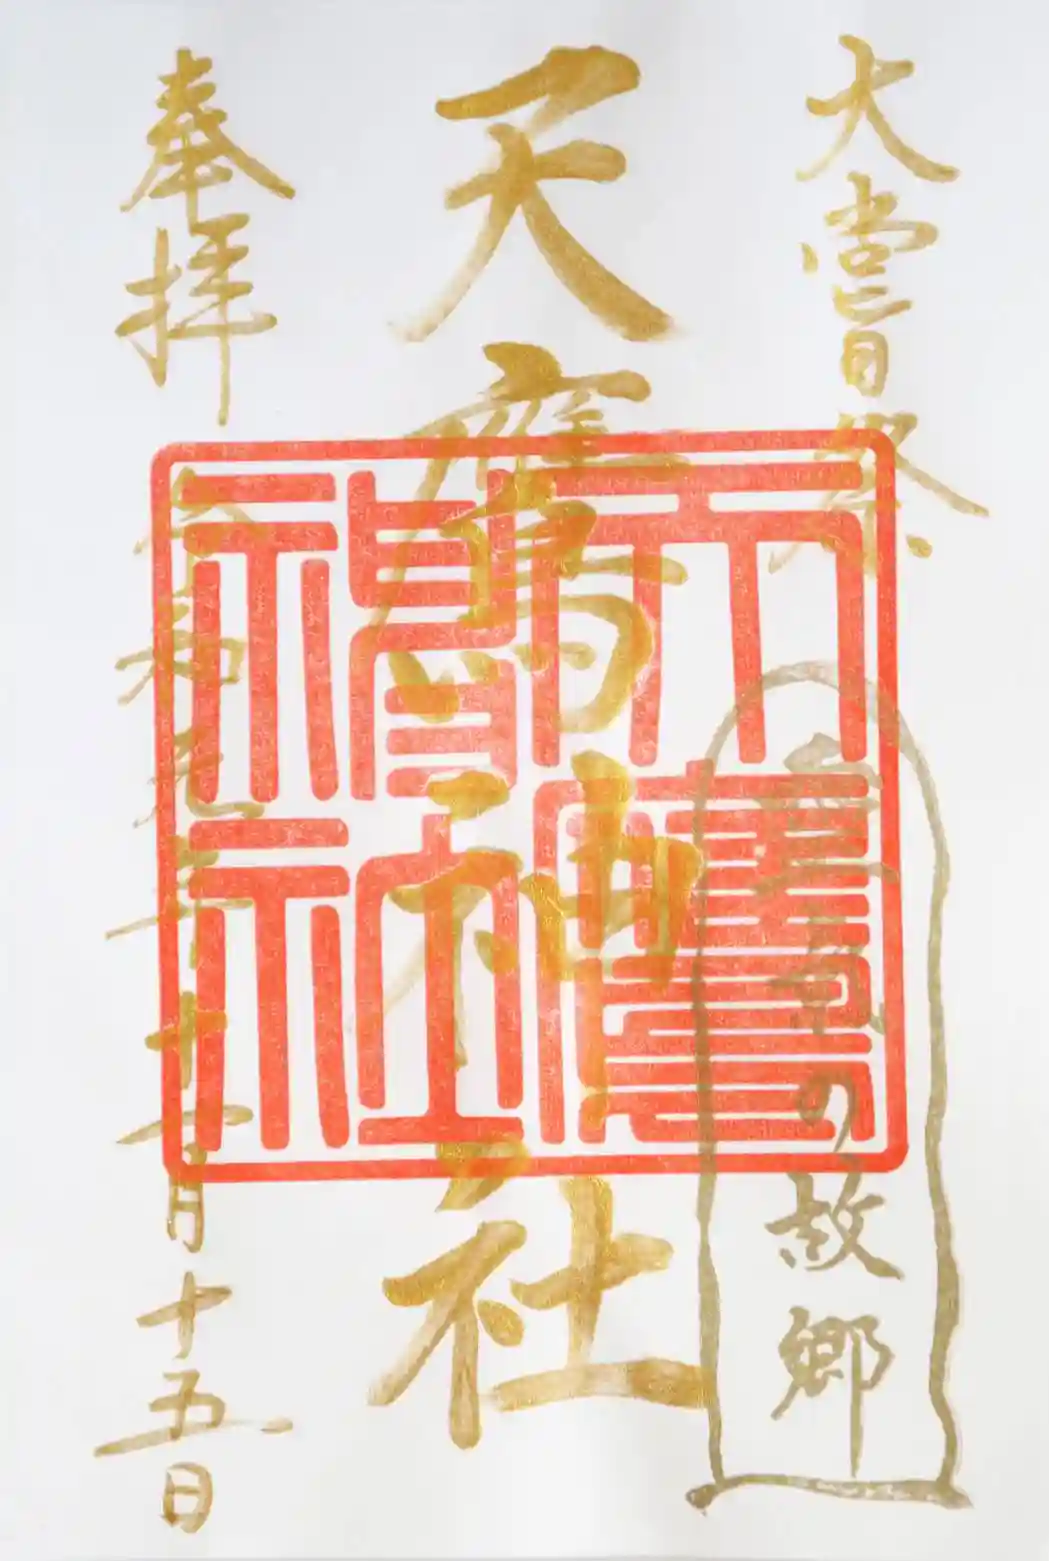 大嘗祭
の故郷
天鷹神社
奉拝
令和元年十一月十五日